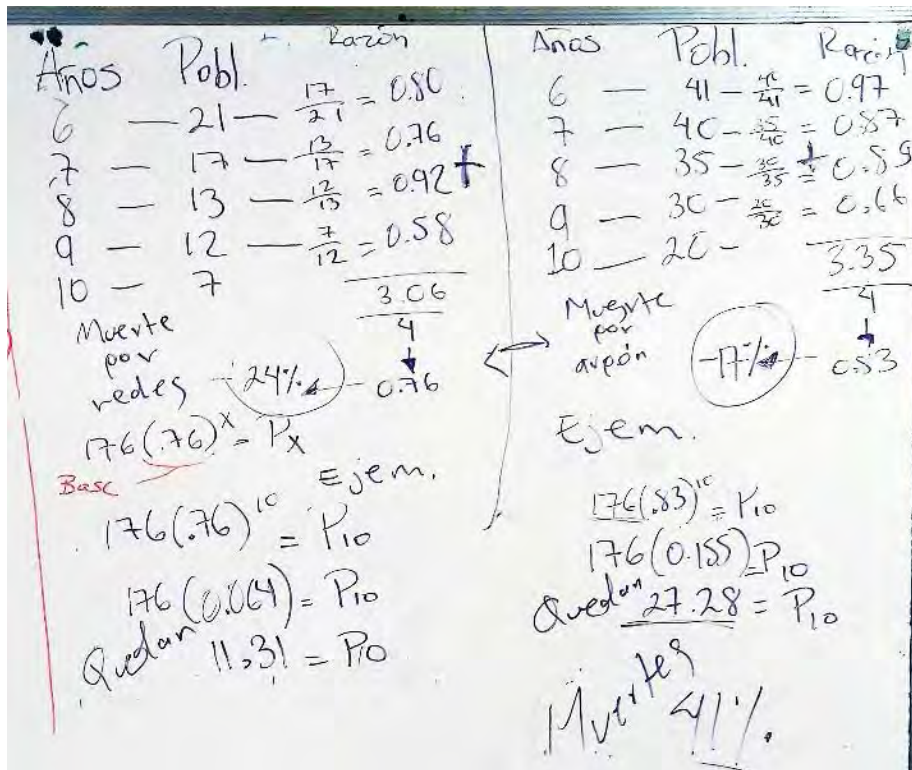 Años Pobl. Razón
6 — 21 — 17/21 = 0.80
7 — 17 — 13/17 = 0.76
8 — 13 — 12/13 = 0.92 +
9 — 12 — 7/12 = 0.58
10 — 7
3.06
4
Muerte
por
redes - 24% - 0.76
176(.76)^x = Px
Base
Ejem.
176(.76)^10 = P10
176(0.064) = P10
Quedan 11.31 = P10
Años Pobl. Razón
6 — 41 — 40/41 = 0.97
7 — 40 — 35/40 = 0.87
8 — 35 — 30/35 + = 0.85
9 — 30 — 20/30 = 0.66
10 — 20 -
3.35
4
Muerte
por
arpón -17% - 0.83
Ejem.
176(.83)^10 = P10
176(0.155) = P10
Quedan 27.28 = P10
Muertes
41%